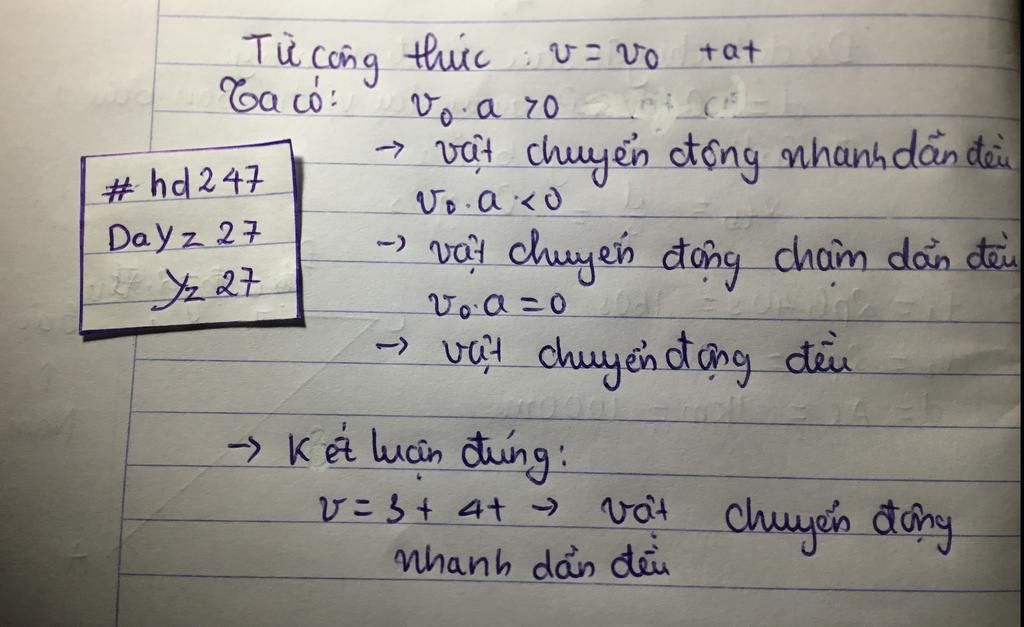 Từ công thức : v = v₀ + at
Ta có: v₀ . a > 0
→ vật chuyển động nhanh dần đều
v₀ . a < 0
→ vật chuyển động chậm dần đều
v₀ . a = 0
→ vật chuyển động đều
# hd247
DaYz 27
Yz 27
→ Kết luận đúng:
v = 3 + 4t → vật chuyển động
nhanh dần đều